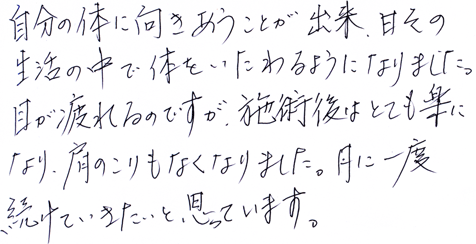 自分の体に向きあうことが出来、日々の
生活の中で体をいたわるようになりました。
目が疲れるのですが、施術後はとても楽に
なり、肩のこりもなくなりました。月に一度
続けていきたいと思っています。